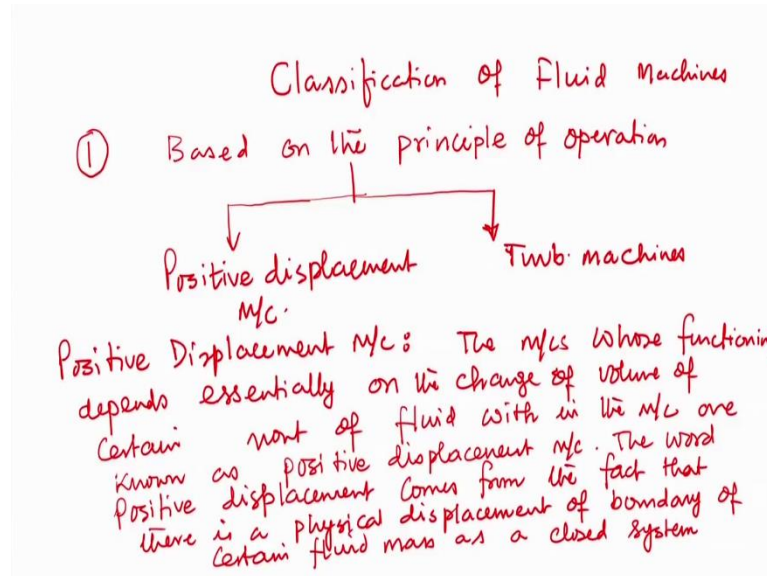 Classification of Fluid Machines
① Based on the principle of operation
Positive displacement
M/C.
Turb. machines
Positive Displacement M/C: The M/Cs whose functionin
depends essentially on the change of volume of
Certain of fluid with in the M/C are
known as positive displacement M/C. The word
Positive displacement comes from the fact that
there is a physical displacement of boundary of
Certain fluid mass as a closed system